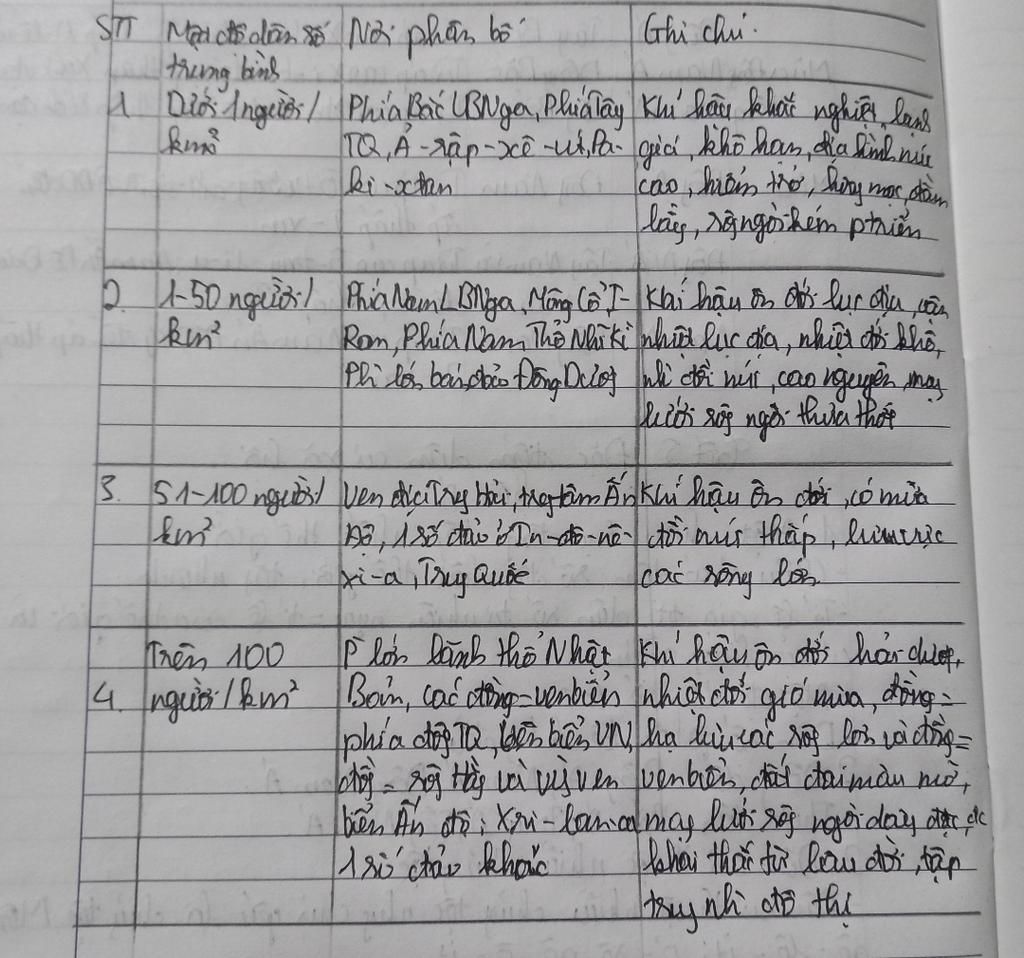 STT Mật độ dân số Nơi phân bố Ghi chú.
trung bình
1. Dưới 1 người/ Phía Bắc LBNga, Phía Tây Khí hậu khắc nghiệt, lạnh
km² TQ, Ả-rập-xê-út, Pa- giá, khô hạn, địa hình núi
ki-xtan cao, hiểm trở, hoang mạc, đầm
lầy, sông ngòi kém ptriển
2. 1-50 người/ Phía Nam LBNga, Mông Cổ, I- Khí hậu ôn đới lục địa, cận
km² Ran, Phía Nam Thổ Nhĩ Kì nhiệt lục địa, nhiệt đới khô,
Phần lớn bán đảo Đông Dương nhì đồi núi, cao nguyên, mạng
lưới sông ngòi thưa thớt
3. 51-100 người/ Ven Địa Trung Hải, trung tâm Ấn Khí hậu ôn đới, có mưa
km² Độ, 1 số đảo ở In-đô-nê- đồi núi thấp, lưu vực
xi-a, Trung Quốc các sông lớn
Trên 100 P lớn lãnh thổ Nhật Khí hậu ôn đới hải dương,
4. người/km² Bản, các đồng = ven biển nhiệt đới gió mùa, đồng =
phía đông TQ, ven biển VN, hạ lưu các sông lớn và đồng =
đồng = sông Hằng và vùng ven ven biển, đất đai màu mỡ,
biển Ấn độ; Xri-lan-ca mạng lưới sông ngòi dày đặc, đc
1 số đảo khác khai thác từ lâu đời, tập
trung nhì đô thị